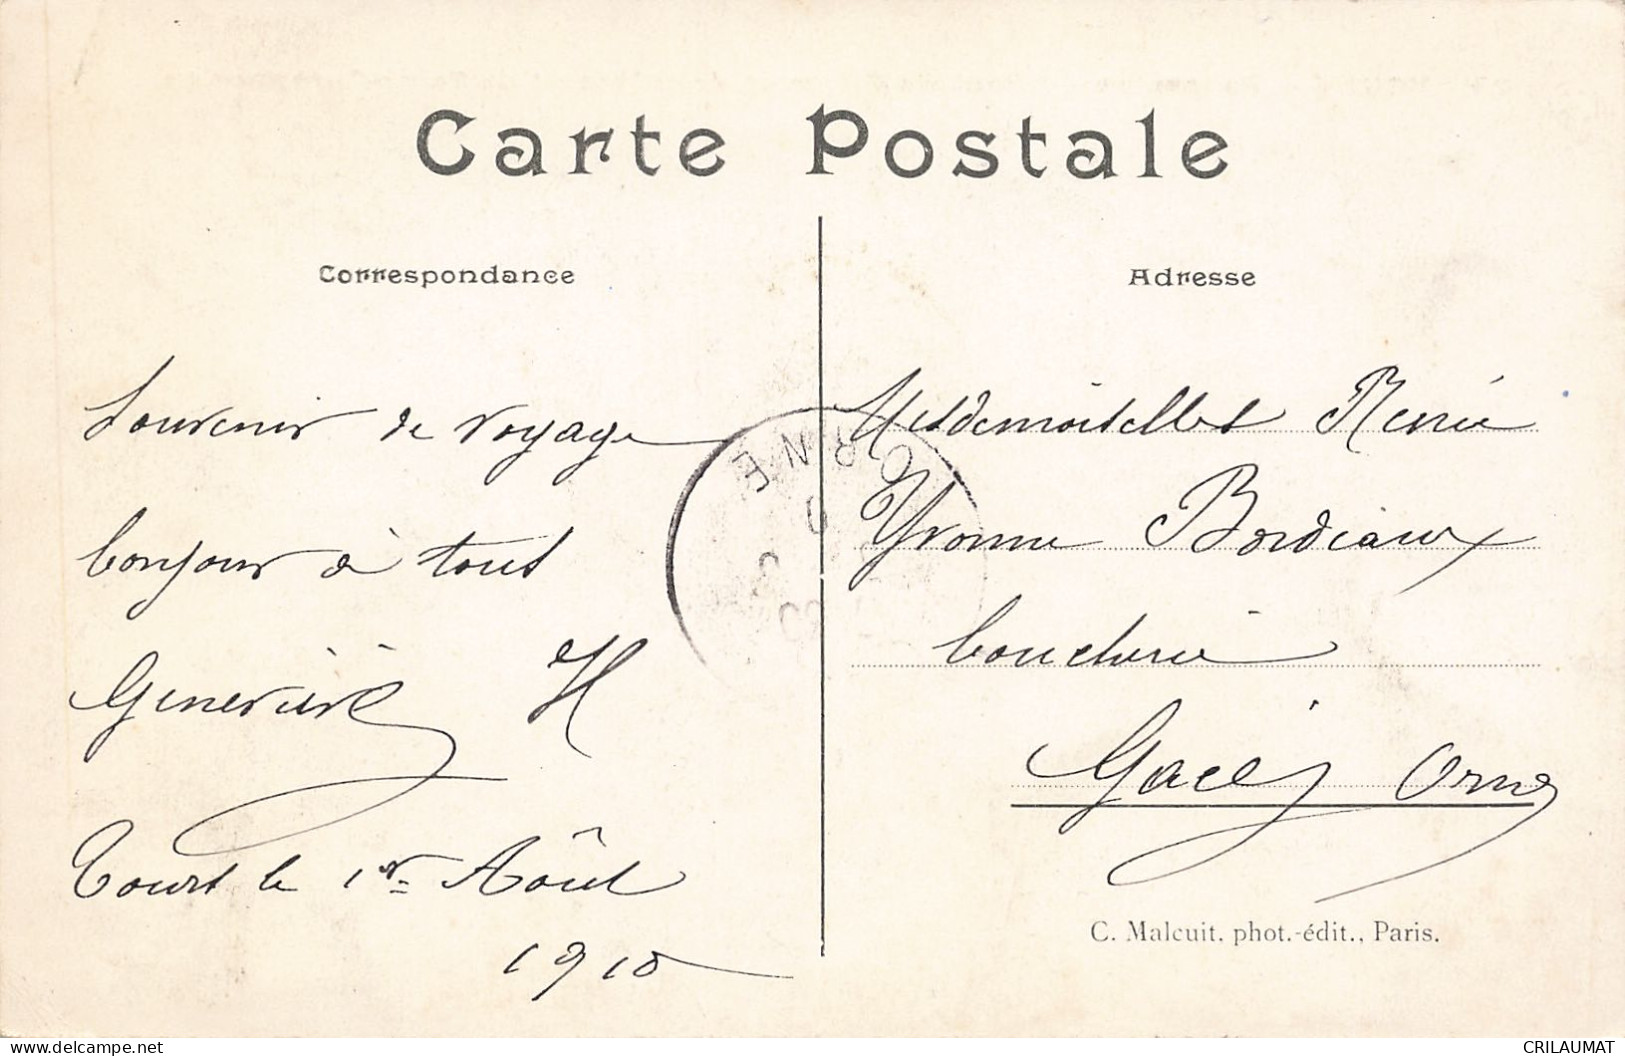 Carte Postale
Correspondance
Souvenir de voyage
bonjour à tous
Geneviève H
Tours le 1er Août
1910
Adresse
Mesdemoiselles Renée
Yvonne Bordeaux
boucherie
Gacé Orne
C. Malcuit, phot.-édit., Paris.
ORNE
CRILAUMAT
Delcampe.net